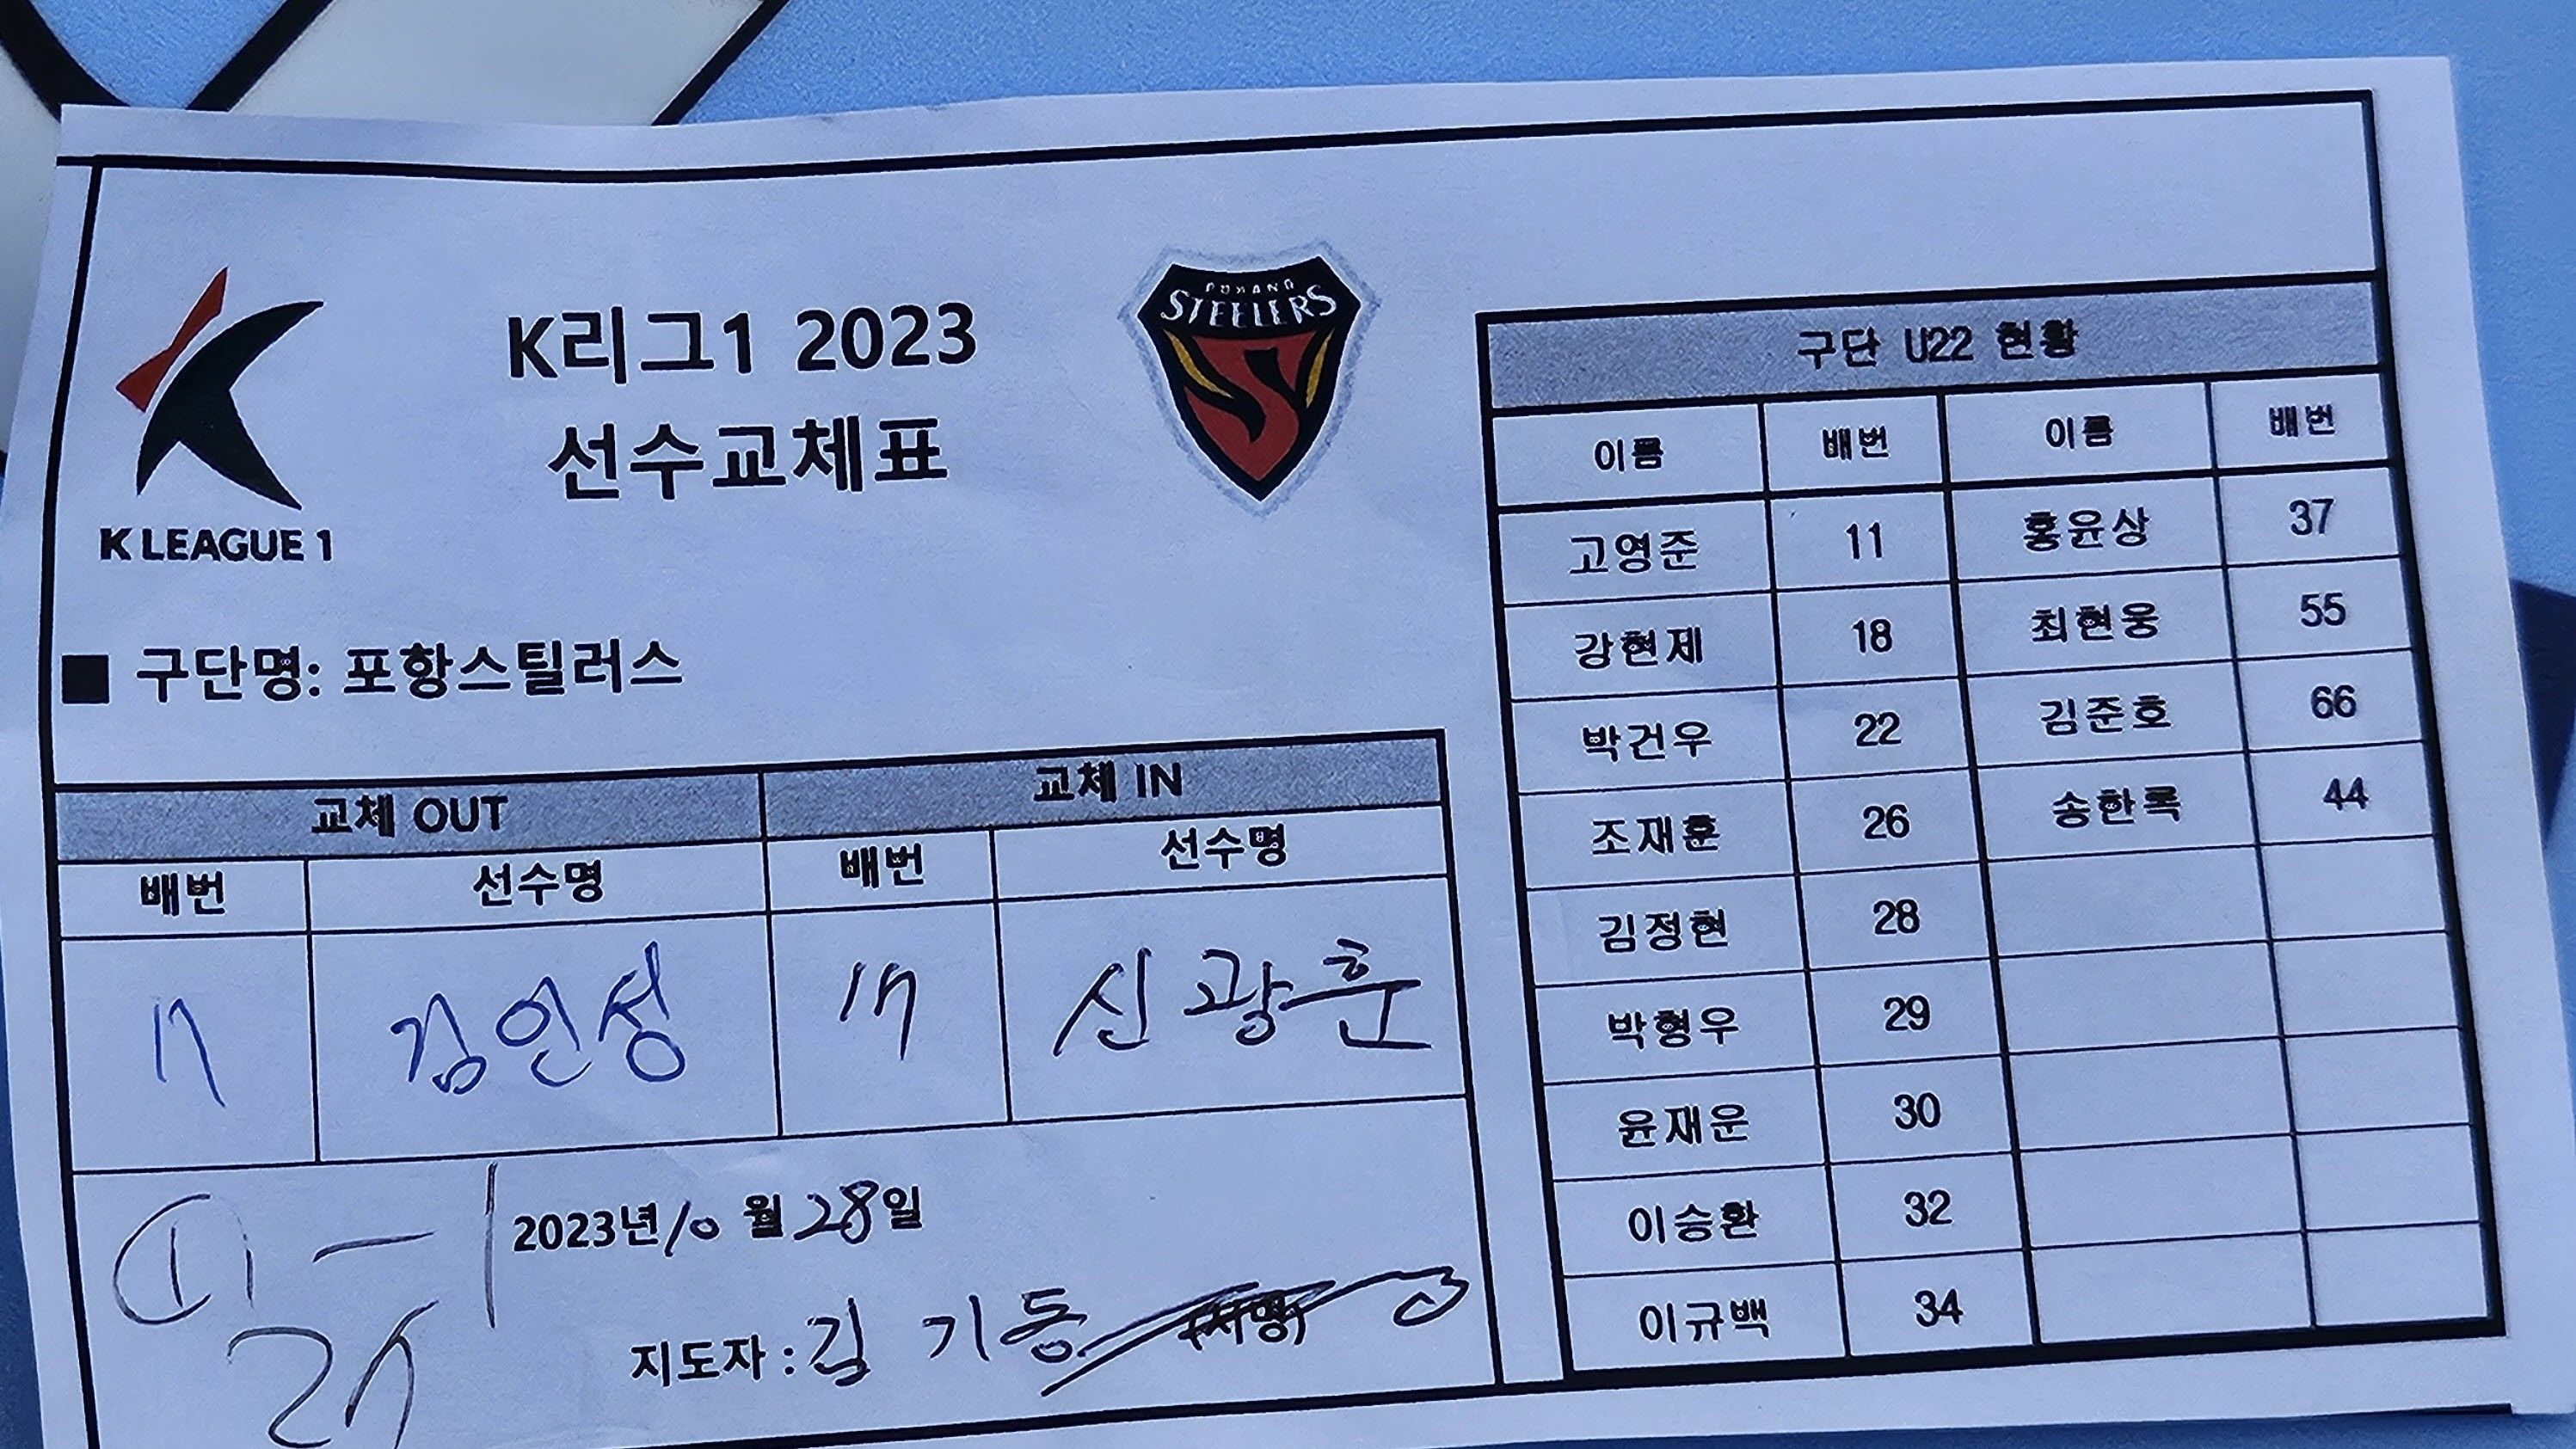 POHANG
STEELERS
K리그1 2023
선수교체표
K LEAGUE 1
■ 구단명: 포항스틸러스
교체 OUT 교체 IN
배번 선수명 배번 선수명
김인성 17 신광훈
2023년 10 월 28일
지도자 : 김 기동 (서명)
구단 U22 현황
이름 배번 이름 배번
고영준 11 홍윤상 37
강현제 18 최현웅 55
박건우 22 김준호 66
조재훈 26 송한록 44
김정현 28
박형우 29
윤재운 30
이승환 32
이규백 34